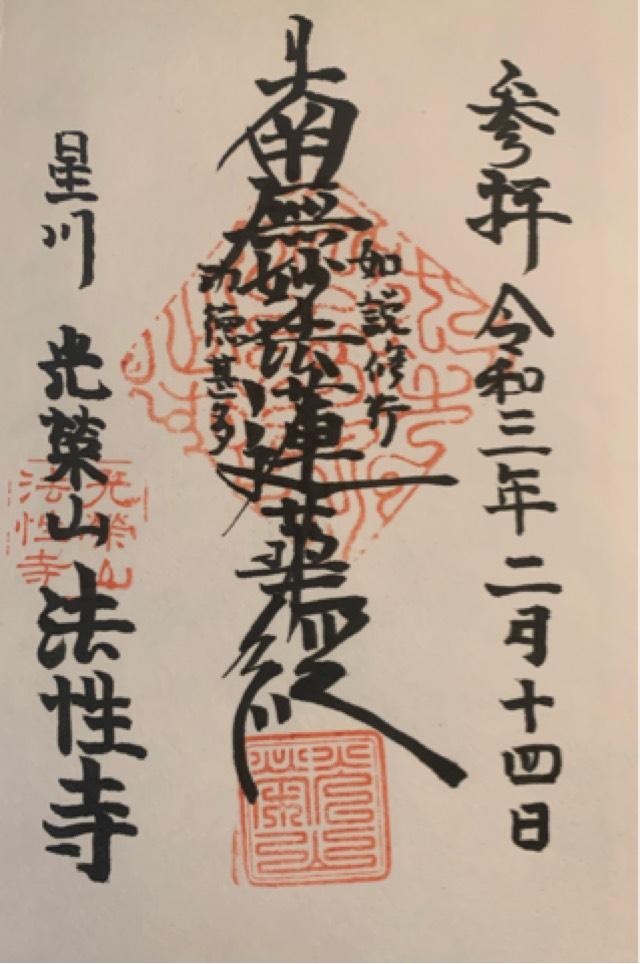 参拝 令和三年二月十四日
如説修行
南無妙法蓮華経
功徳甚多
星川 光榮山 法性寺
光榮山
法性寺